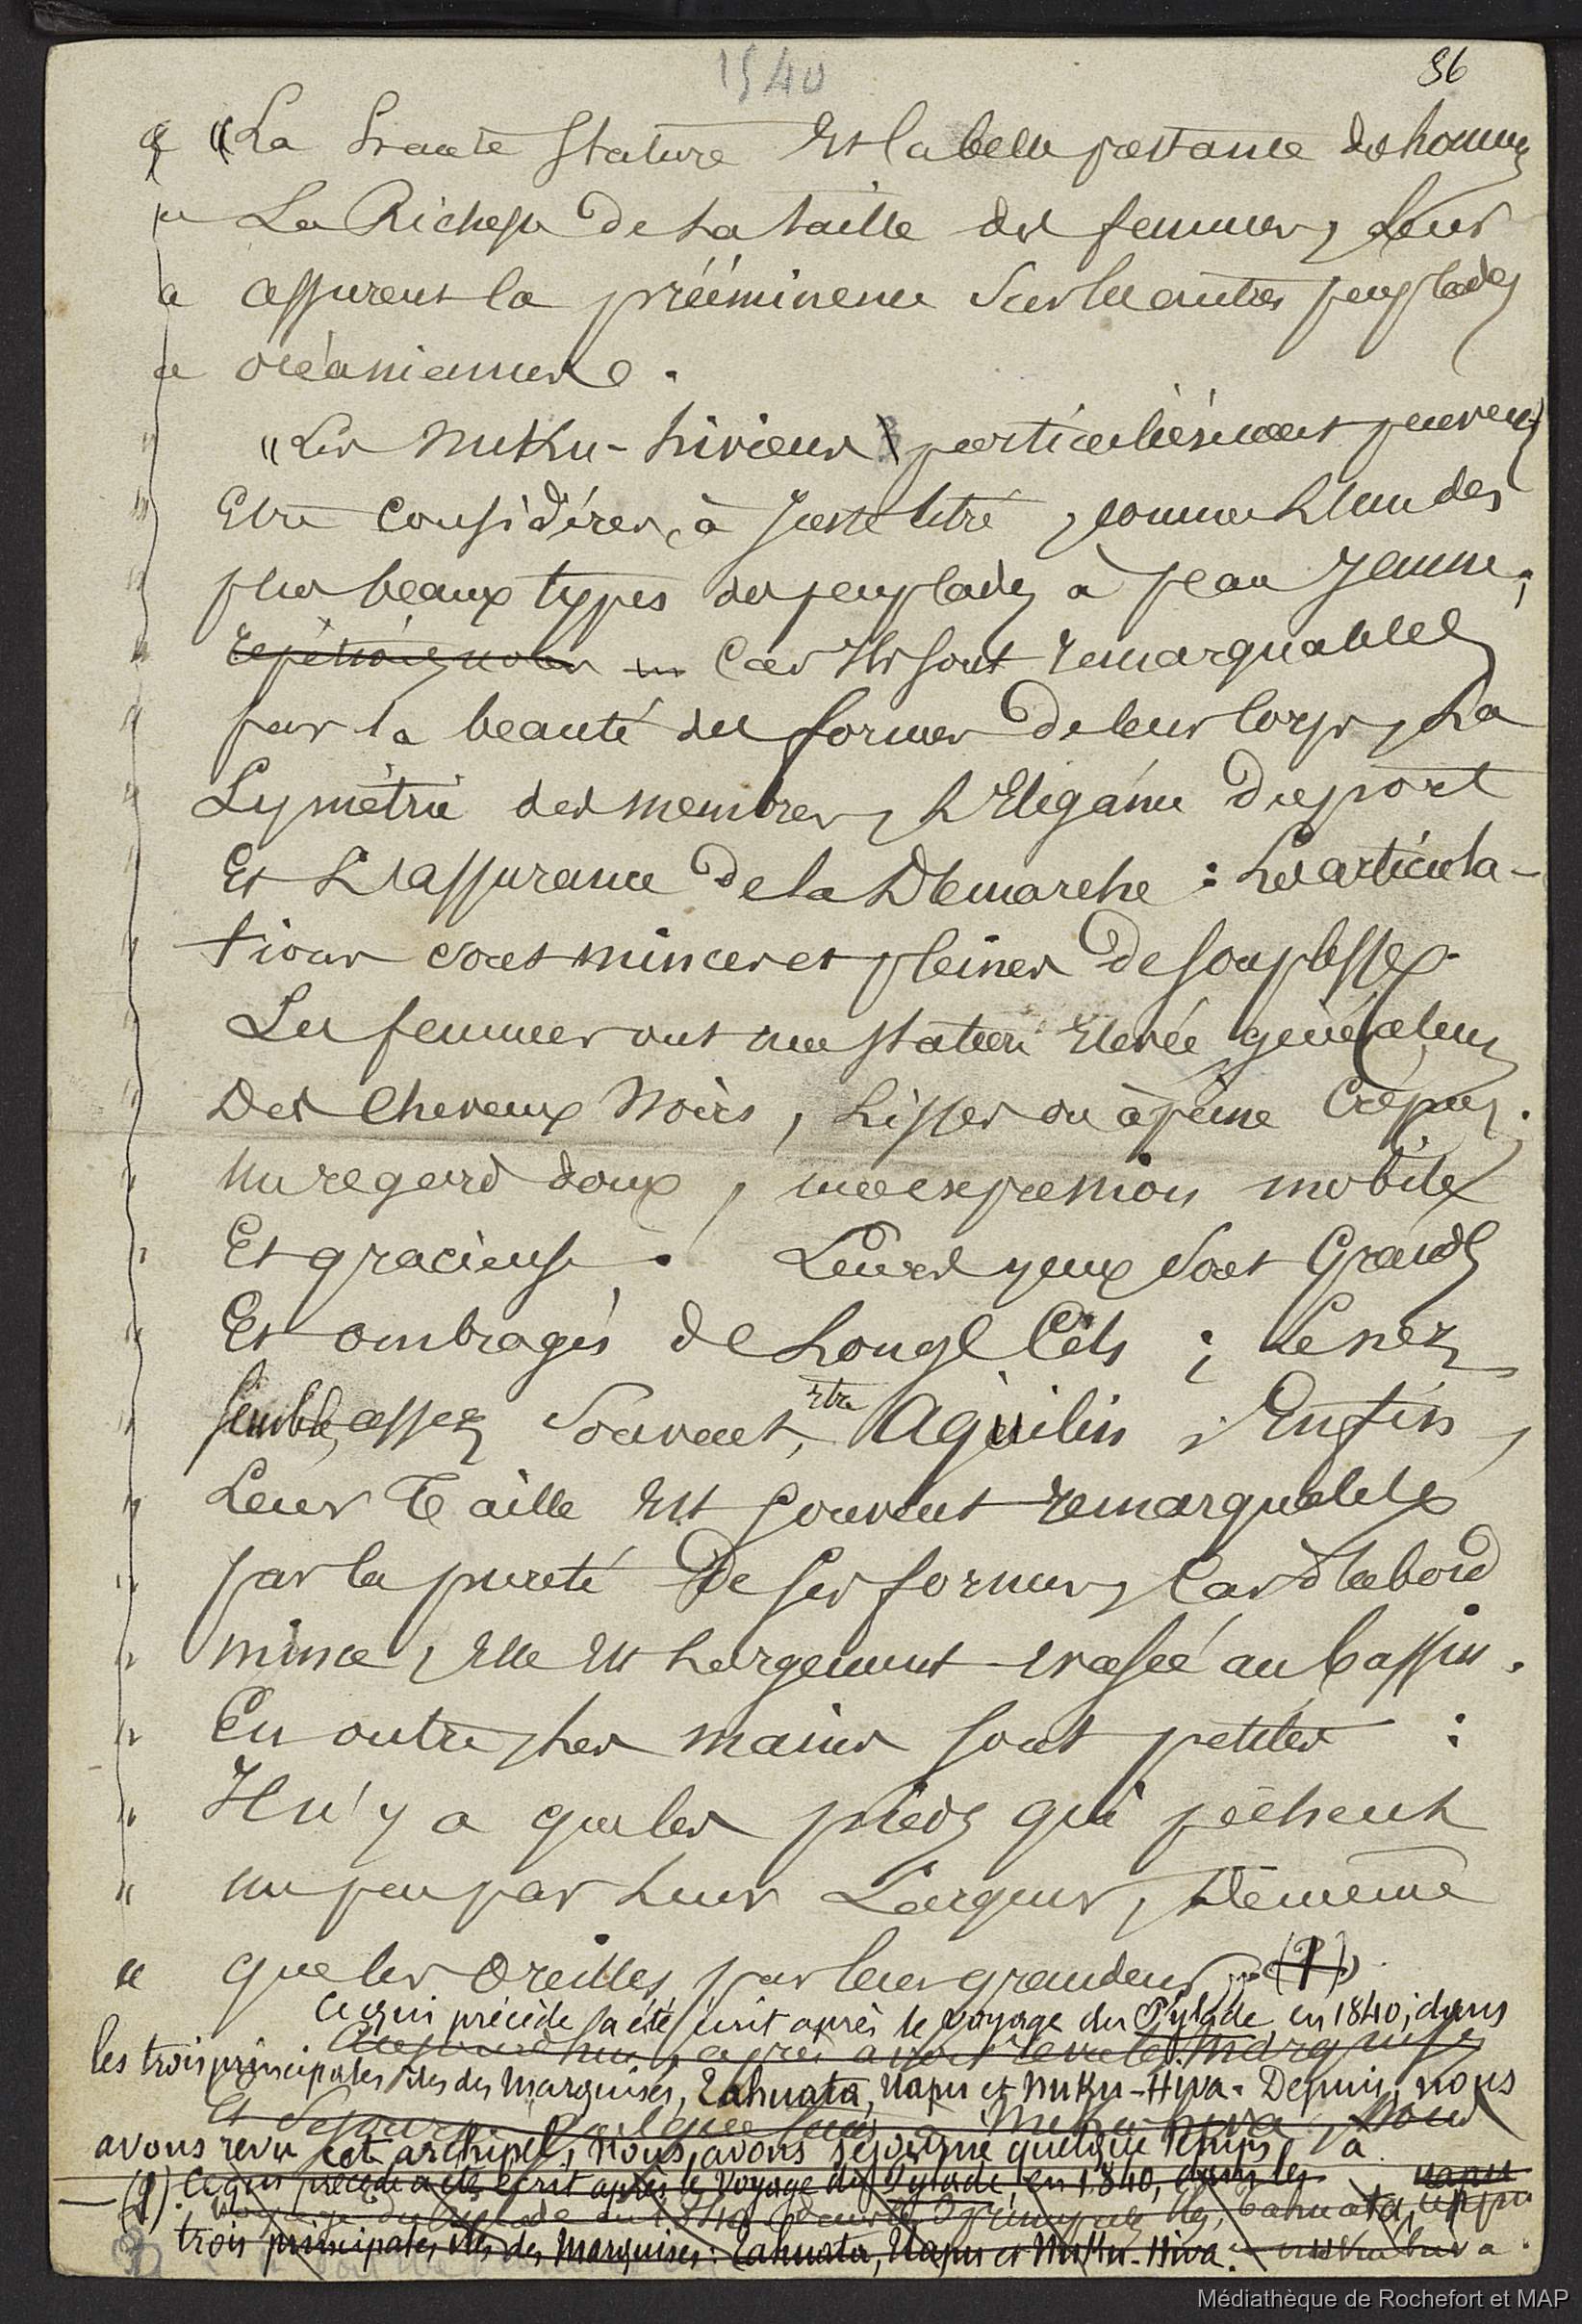 1540
86
« "La haute stature et la belle prestance des hommes
« La Richesse de la taille des femmes, leur
« assurent la prééminence sur les autres peuplades
« océaniennes.
" "Les Nuku-hiviens particulièrement peuvent
" Etre considérés, à juste titre, comme l'un des
" plus beaux types des peuplades à peau jaune;
" Car Ils sont remarquables
" par la beauté des formes de leur corps, La
" Symétrie des membres, L'Elégance du port
" Et L'assurance de la Démarche : Les articula-
" tions sont minces et pleines de souplesse.
" Les femmes ont une stature Elevée généralement
" Des Cheveux Noirs, Lisses ou à peine Crépus.
" un regard doux, une expression mobile
" Et gracieuse. Leurs yeux sont Grands
" Et ombragés de Longs Cils ; Le nez
" semble, assez Souvent, etre Aquilin ; Enfin,
" Leur Taille est souvent remarquable
" par la pureté de ses formes, Car d'abord
" mince, elle est Largement evasée au bassin.
" En outre, les mains sont petites :
" Il n'y a que les pieds qui pêchent
" un peu par leur Largeur, De même
« que les Oreilles, par leur grandeur. (1)
Ce qui précède a été écrit après le voyage du Pylade en 1840, dans
Aujourd'hui, après avoir revu les Marquises
les trois principales îles des Marquises, Tahuata, Uapu et Nuku-Hiva. Depuis, nous
Et séjourné quelque temps à Nuku-hiva, nous
avons revu cet archipel, Nous avons séjourné quelque temps à
(1). Ce qui précède a été écrit après le Voyage du Pylade, en 1840, dans les uapu
voyage du Pylade en 1840 dans les principales îles, Tahuata, uapu
trois principales îles des Marquises : Tahuata, Uapu et Nuku-Hiva. nukuhiva.
Médiathèque de Rochefort et MAP